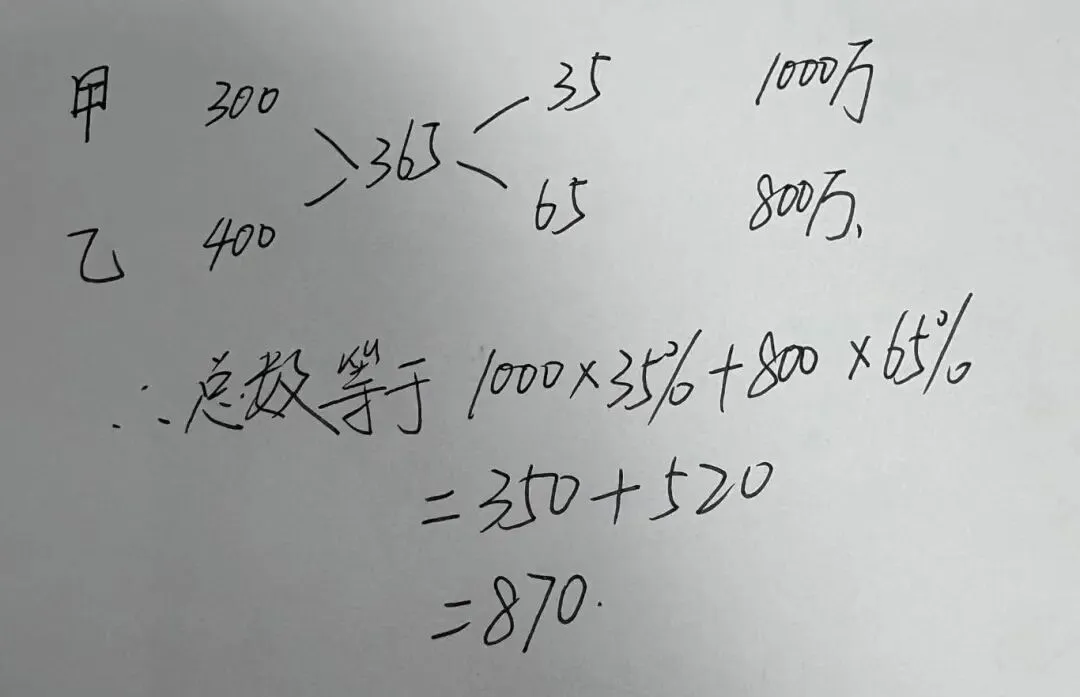 甲 300 35 1000万
365
乙 400 65 800万、
∴总数等于 1000×35%+800×65%
=350+520
=870.